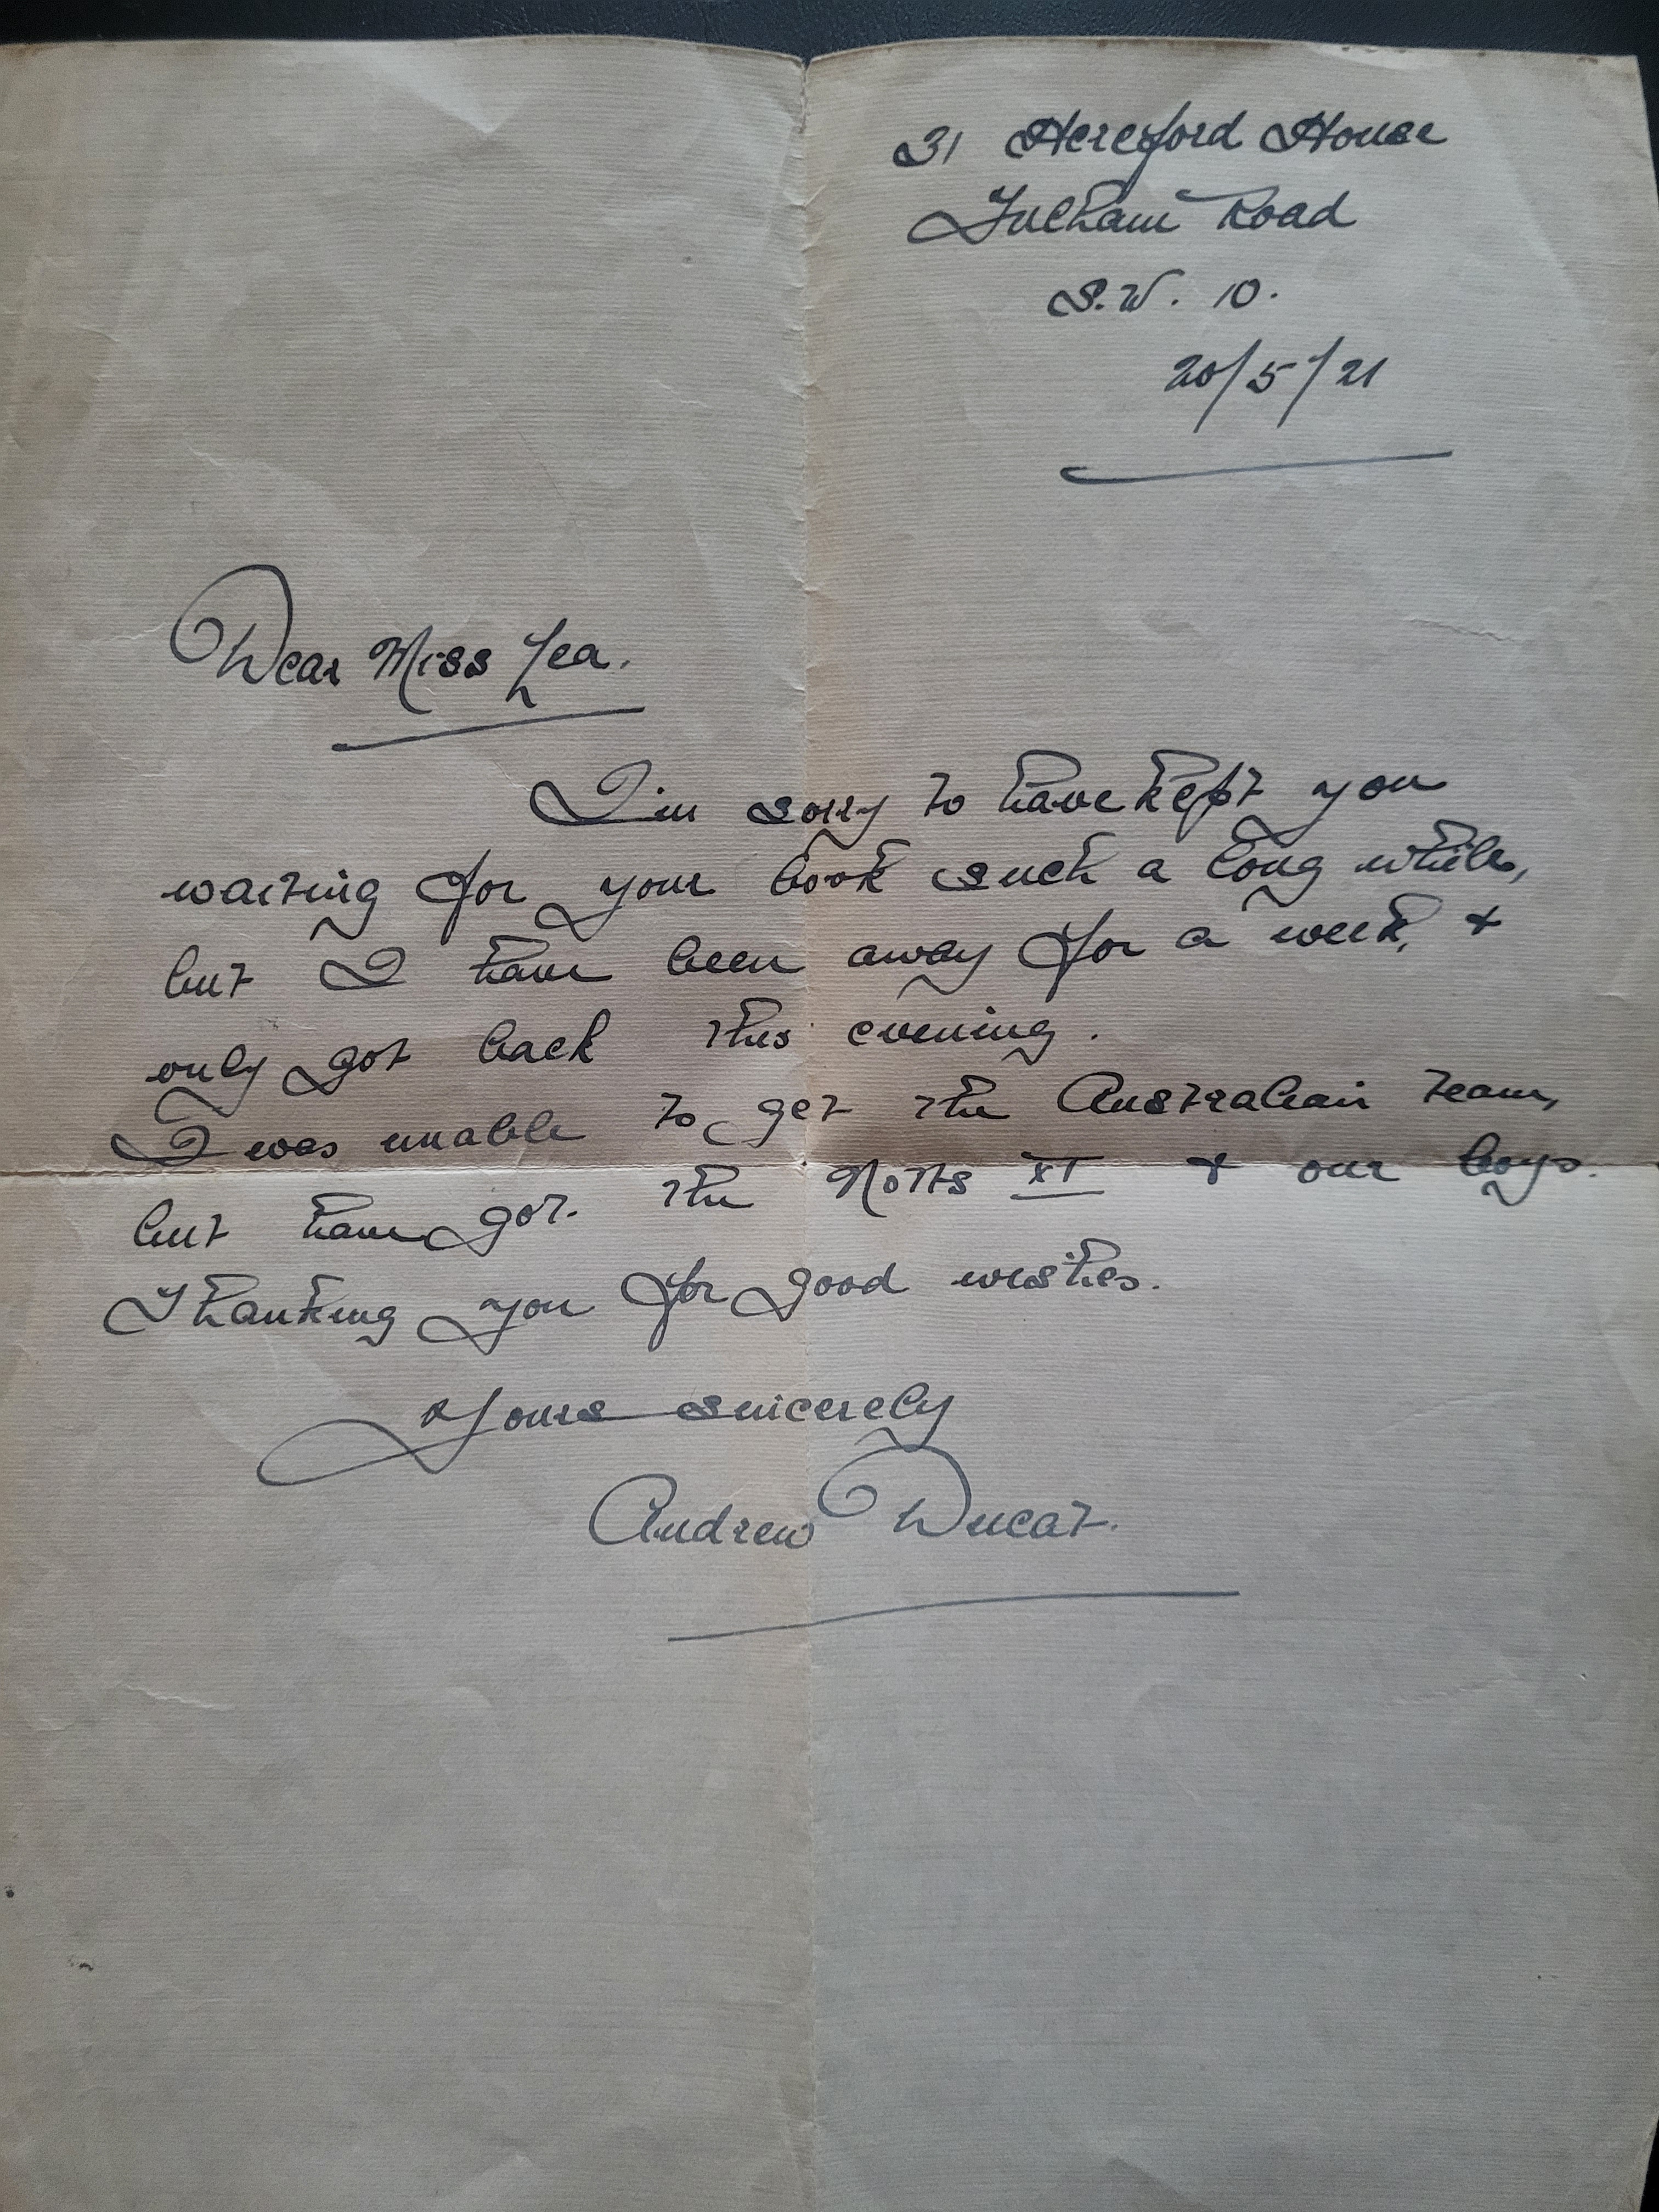 31 Hereford House
Fulham Road
S.W. 10.
20/5/21
Dear Miss Lea.
I'm sorry to have kept you
waiting for your book such a long while,
but I have been away for a week, +
only got back this evening.
I was unable to get the Australian team,
but have got. the Notts XI + our boys.
Thanking you for good wishes.
Yours sincerely
Andrew Ducat.